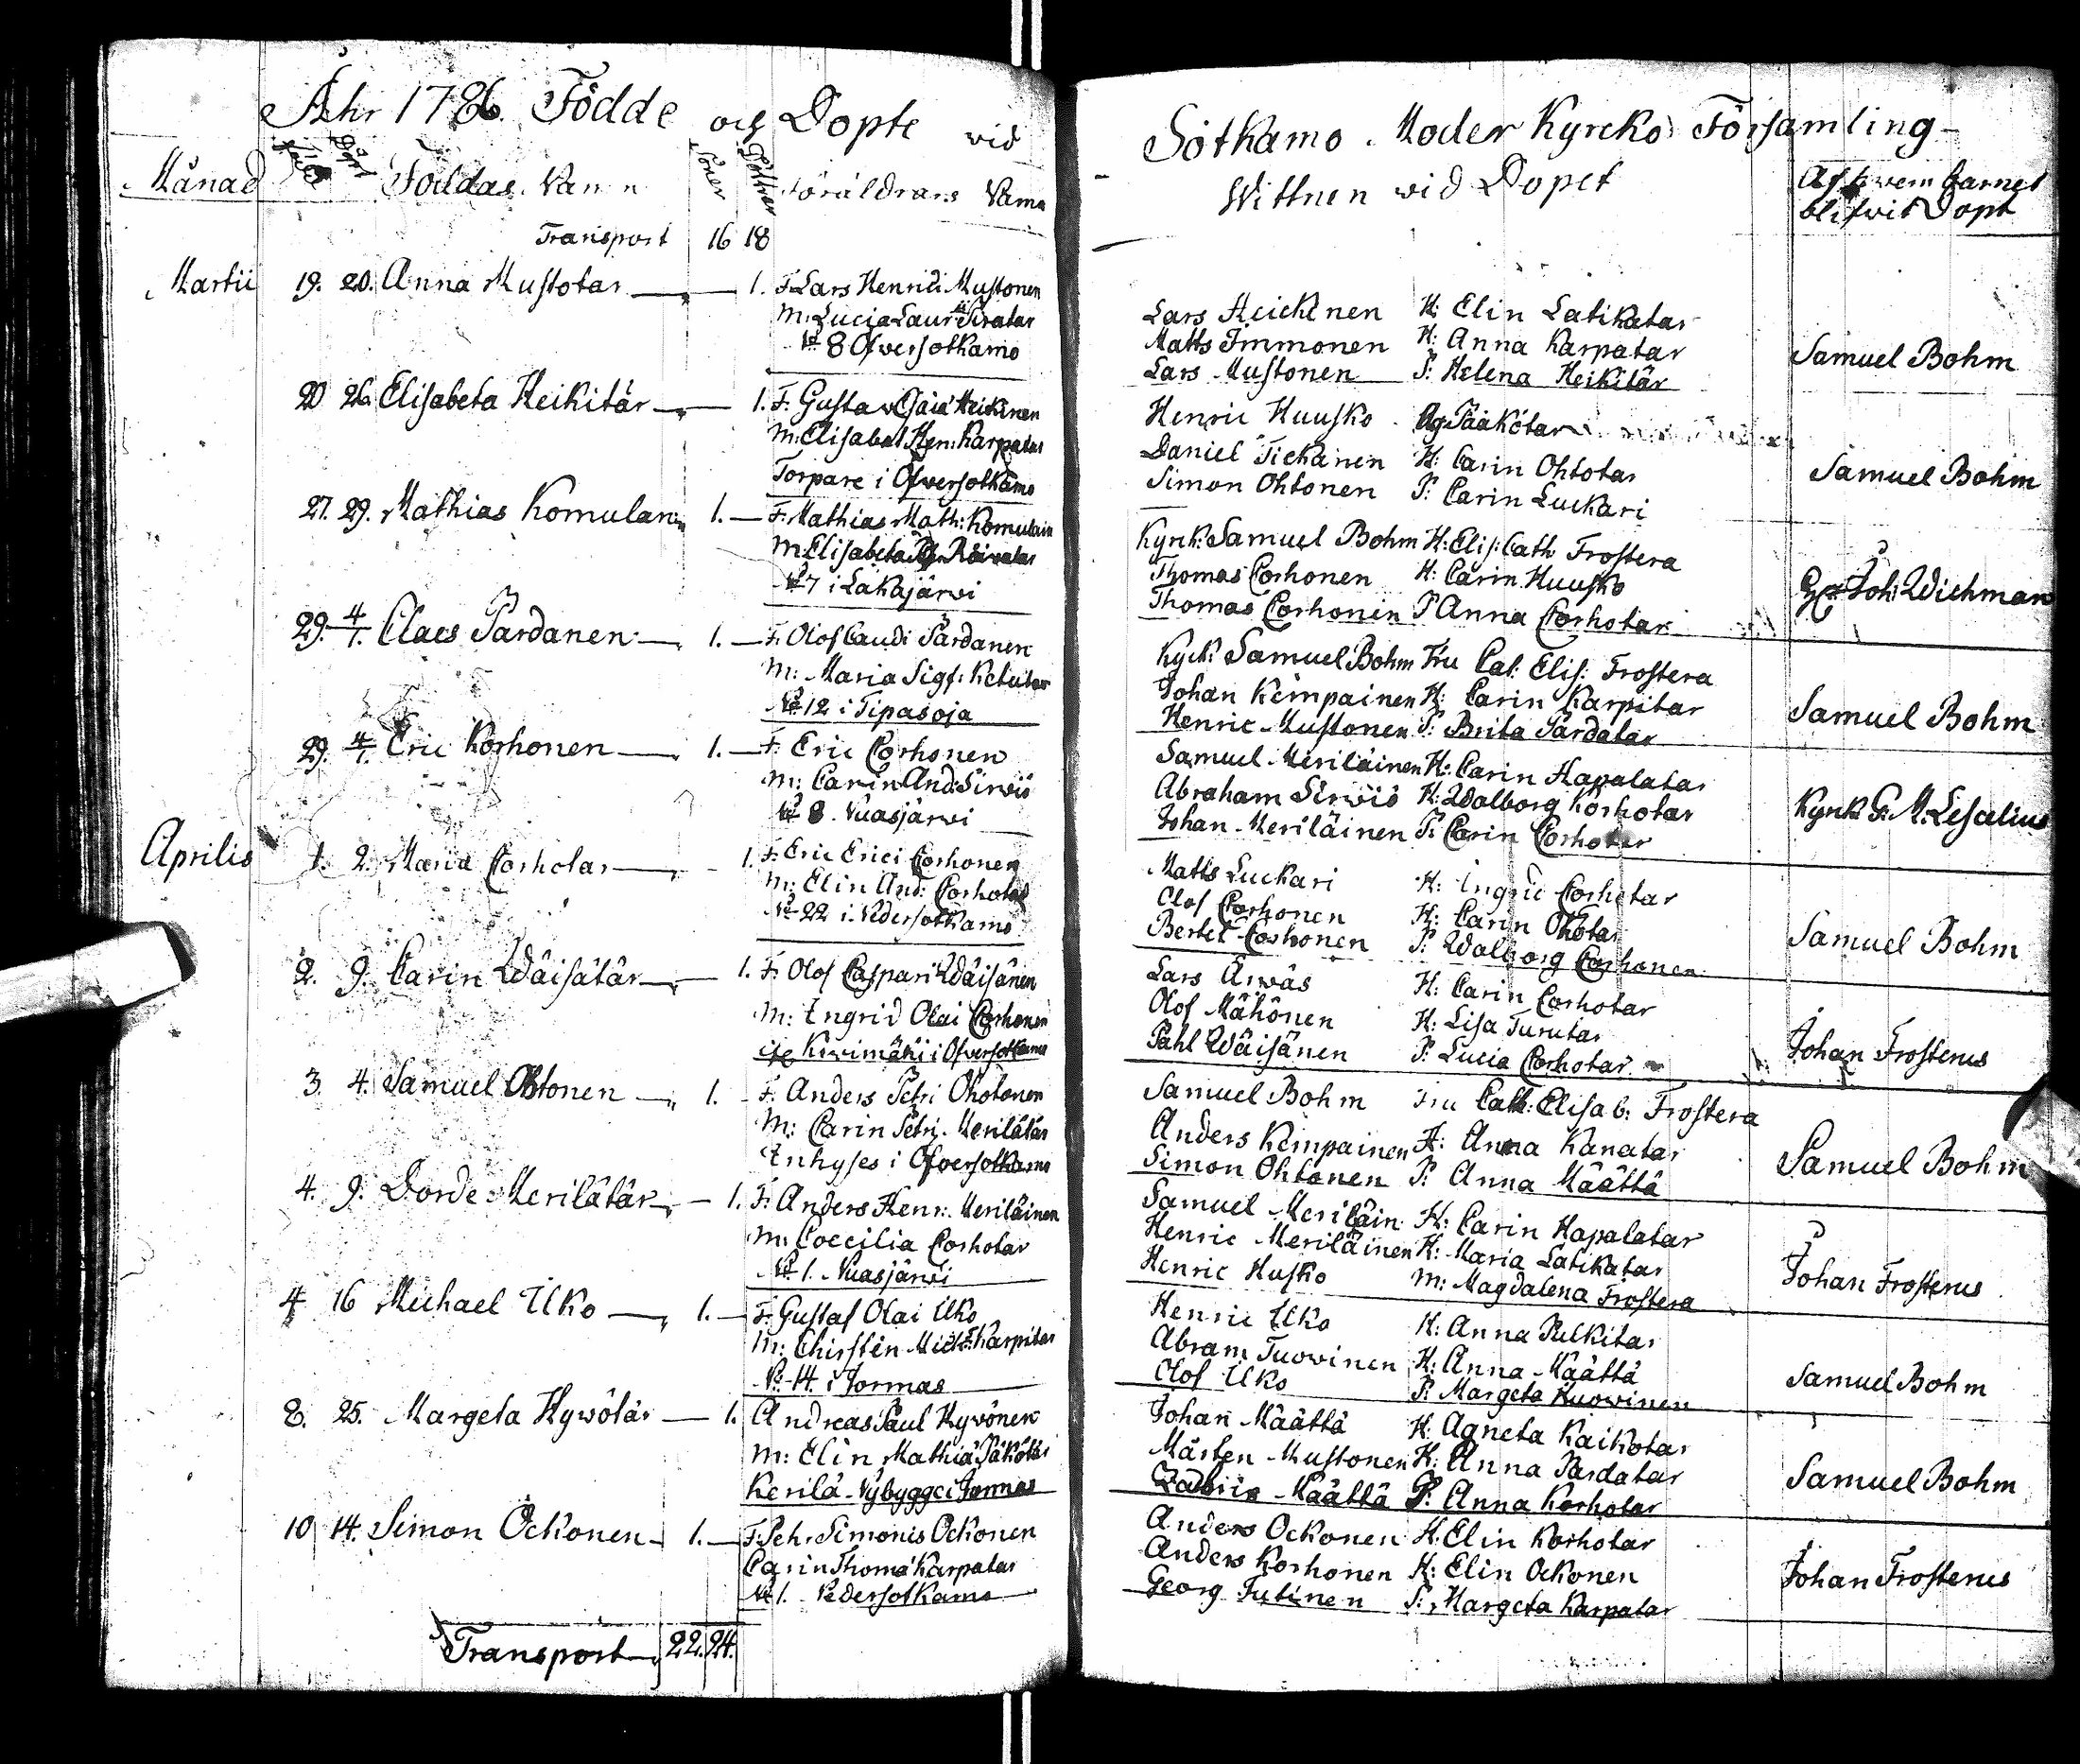 Åhr 1786. Födde och Dopte wid
Månad Född Döpt Föddas Namn Söner Döttrar Föräldrars Namn
Transport 16 18
Martii 19. 20. Anna Mustotar 1. F. Lars Henrici Mustonen
M: Lucia Laur: Siratar
No 8 Öfwersotkamo
20 26 Elisabeta Heikitär 1. F. Gustav Esaiæ Heickinen
M: Elisabet Hen: Karpatar
Torpare i Öfwersotkamo
27. 29. Mathias Komulan 1. F. Mathias Math: Komulain
M: Elisabeta Räivatar
No 7 i Lakajärwi
29. 4/1. Claes Pardanen 1. F. Olof Claudi Pardanen
M: Maria Sigf: Kelutar
No 12 i Tipasoja
29. 4/1. Eric Korhonen 1. F. Eric Corhonen
M: Carin And: Sirwiö
No 8. Nuasjärwi
Aprilis 1. 2. Maria Corhotar 1. F. Eric Erici Corhonen
M: Elin And: Corhotar
No 22 i Nedersotkamo
2. 9. Carin Wäisätär 1. F. Olof Caspari Wäisänen
M: Ingrid Olai Corhonen
Kiwimäki i Öfwersotkamo
3. 4. Samuel Ohtonen 1. F. Anders Petri Ohotonen
M: Carin Petri Merilätär
Inhyses i Öfwersotkamo
4. 9. Dorde Merilätär 1. F: Anders Henr: Meriläinen
M: Coecilia Corhotar
No 1. Nuasjärwi
4 16 Michael Ulko 1. F: Gustaf Olai Ulko
M: Chirstin Mich: Karpitar
No 14. i Jormas
8. 25. Margeta Hywötär 1. Andreas Paul Hywönen
M: Elin Mathiæ Päkötär
Kerilä Nybygge i Jormas
10 14. Simon Ockonen 1. F: Pehr Simonis Ockonen
Carin Thomæ Karpatar
No 1. Nedersotkamo
Transport 22. 24.
Sotkamo Moder Kyrcko Församling
Wittnen wid Dopet Af hwem barnet
blifwit Döpt
Lars Heickinen H: Elin Latikatar
Matts Immonen H: Anna Karpatar
Lars Mustonen P: Helena Heikitär
Samuel Bohm
Henric Huusko Ag: Pääkötar
Daniel Tickanen H: Carin Ohtotar
Simon Ohtonen P: Carin Luckari
Samuel Bohm
Kyrk: Samuel Bohm H: Elis: Cath Frostera
Thomas Corhonen H: Carin Huusko
Thomas Corhonen P Anna Corhotar
Joh: Wichman
Kyrk: Samuel Bohm Fru Cat: Elis: Frostera
Johan Kempainen H: Carin Karpitar
Henric Mustonen P: Brita Pardatar
Samuel Bohm
Samuel Meriläinen H: Carin Hapalatar
Abraham Sirwiö H: Walborg Korhotar
Johan Meriläinen P: Carin Corhotar
Kyrk: G: M. Lescelius
Matts Luckari H: Ingrid Corhotar
Olof Corhonen H: Carin Ohotar
Bertel Corhonen P: Walborg Corhonen
Samuel Bohm
Lars Arwäs H: Carin Corhotar
Olof Mähönen H: Lisa Turutar
Påhl Wäisänen P: Lucia Corhotar
Johan Frosterus
Samuel Bohm Fru Cath: Elisab: Frostera
Anders Kempainen H: Anna Kanatar
Simon Ohtonen P: Anna Määttä
Samuel Bohm
Samuel Meriläin H: Carin Hapalatar
Henric Meriläinen H: Maria Latikatar
Henric Husko M: Magdalena Frostera
Johan Frosterus
Henric Ulko H: Anna Pulkitar
Abram Tuowinen H: Anna Määttä
Olof Ulko P: Margeta Kuowinen
Samuel Bohm
Johan Määttä H: Agneta Kaikotar
Mårten Mustonen H: Anna Pardatar
Zachris Määttä P: Anna Korhotar
Samuel Bohm
Anders Ockonen H: Elin Korhotar
Anders Korhonen H: Elin Ockonen
Georg Tutinen P: Margeta Karpatar
Johan Frosterus